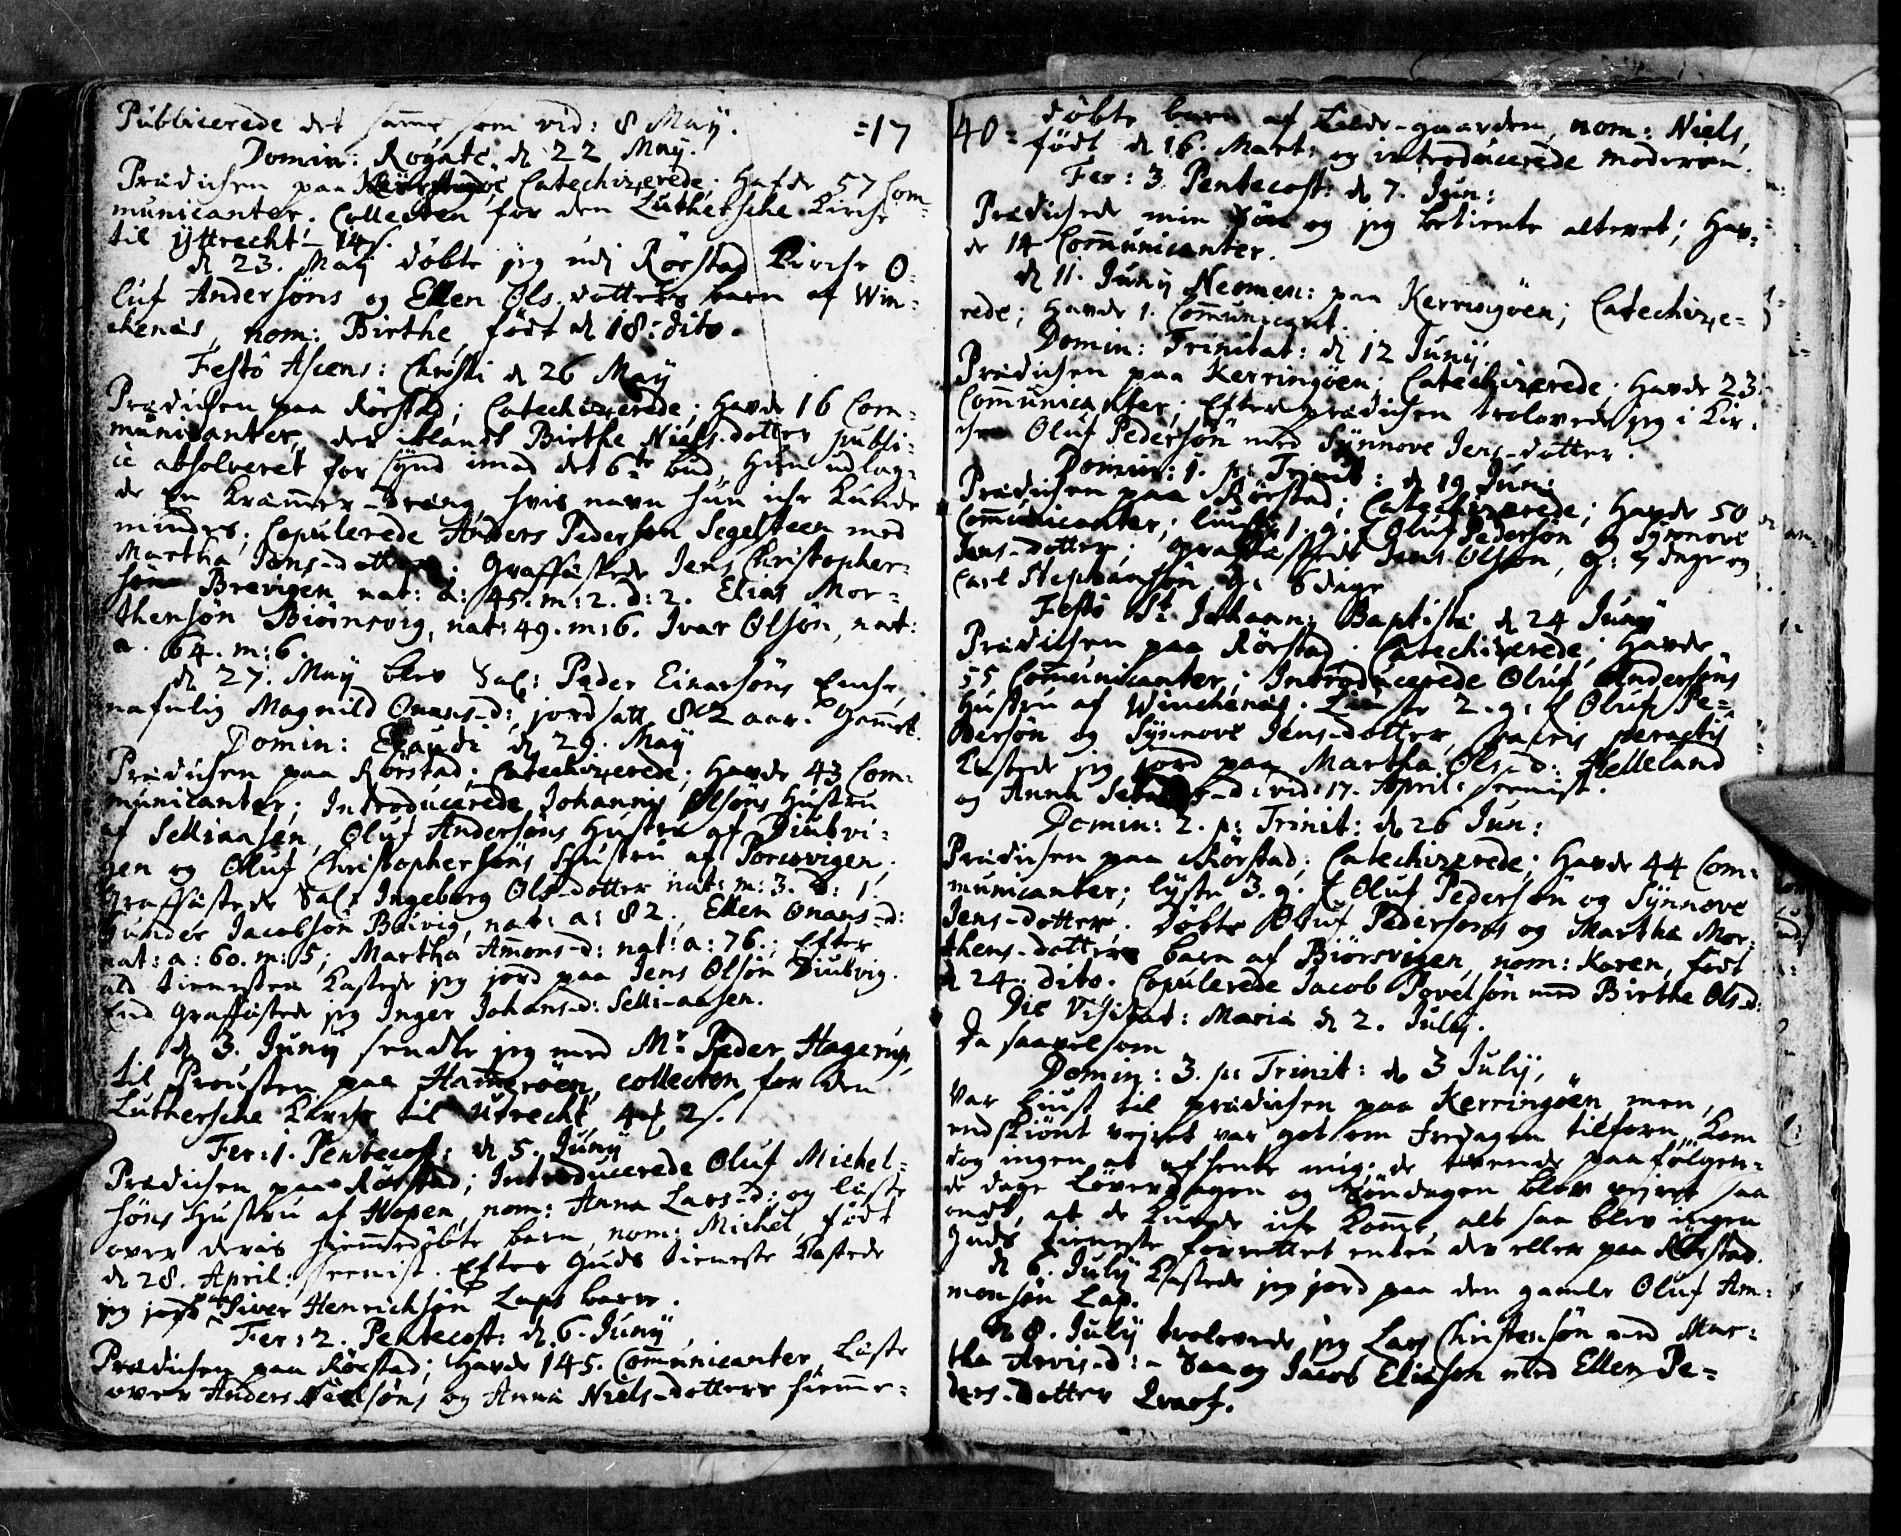 Publicerede det samme som vid: 8 May. =17
Domin: Rogate, d 22 May.
Prædichen paa Catechizerede; Hafde 57 Com-
municanter. Collecten for den Luthersche Kirche
til Yttrecht - 14 s.
d 23. May döbte jeg udj Rörstad Kirche O-
luf Andersöns og Ellen Ols-dotters barn af Win-
chenæs, nom: Birthe, födt d 18: dito.
Festô Ascens: Christi d 26 May
Prædichen paa Rörstad; Catechizerede; Havde 16 Com-
municanter, der iblandt Birthe Niels-dotter publi-
ce absolveret for synd imod det 6te bud. Hun udlag-
de en Kræmmer-dreng, hvis navn hun iche kunde
mindes; Copulerede Anders Pedersön Segelsteen med
Martha Jens-dotter. Graffæstede Jens Christopher-
sön Brevigen nat: a: 45. m: 2. d: 2. Elias Mor-
thensön Biörnsvig, nat: 49. m: 6. Ivar Olsön, nat:
a. 64. m: 6.
d 27. May blev Sal: Peder Einarsöns Enche,
nafnlig Magnild Onans-d: jordsatt, 82 aar. Gammel.
Domin: Exaudi d 29. May
Prædichen paa Rörstad; Catechizerede; Havde 43 Com-
municanter; Introducerede Johannis Olsöns Hustru
af Selliaasen, Oluf Andersöns Hustru af Diubvi-
gen og Oluf Christophersöns Hustru af Porsvigen;
Graffæstede Sal: Ingeborg Ols-dotter nat: m: 3. d: 1.
Gunder Jacobsön Bövig, nat: a: 82. Ellen Onans-d:
nat: a: 60. m: 5; Martha Amons-d: nat: a: 76.; Efter
all tienesten kastede jeg jord paa Jens Olsön Diubvig.
End Graffæstede jeg Inger Johans-d: Selli-aasen.
d 3. Junÿ sendte jeg med Mr Peder Hagerup,
til Prousten paa Hamerøen, collecten for den
Luthersche Kirche til Utrecht, 4 2 s.
Fer: 1. Pentecost: d 5. Junÿ
Prædichen paa Rörstad; Introducerede Oluf Michel-
söns Hustru af Hopen, nom: Anna Lars-d: og læste
over deris hiemmedöbte barn, nom: Michel, födt
d 28. April: Efter Guds tieneste kastede
jeg jord paa Siver Henrichsön Laps barn.
Fer: 2. Pentecost: d 6. Junÿ
Prædichen paa Rörstad; Havde 145. Communicanter, Læste
over Anders Nielsöns og Anna Niels-dotters hiemme-
40= döbte barn af Lilde-gaarden, nom: Niels,
födt d 16. Mart: og introducerede moderen.
Fer: 3. Pentecost: d 7. Jun:
Prædichede min Sön og jeg betiente alteret; Hav-
de 14 Communicanter.
d 11. Junÿ paa Kerringöen; Catechize-
rede; Havde 1. Communicant.
Domin: Trinitat: d 12 Junÿ.
Prædichen paa Kerringöen; Catechizerede; Havde 23
Communicanter; Efter prædichen trolovede jeg i Kir-
chen Oluf Pedersön med Synnove Jens-dotter.
Domin: 1. p: Trinit: d 19 Jun:
Prædichen paa Rörstad; Catechizerede; Havde 50
Communicanter; liuste 1. g. Oluf Pedersön og Synnove
Jens-dotter; graffæstede Jens Olsön, g: 5 dage og
Carl Stephansön g: 6 dage
Festô St. Johann: Baptistæ d 24 Junÿ
Prædichen paa Rörstad. Catechizerede; Havde
55 Communicanter; Introducerede Oluf Andersöns
Hustru af Winchenæs. Liuste 2. g: Oluf Pe-
dersön og Synnove Jens-dotter, sacris peractis
kastede jeg jord paa Martha Ols-d: Helleland
og Anna -d: vid: 17. April:
Domin: 2. p: Trinit: d 26 Jun:
Prædichen paa Rörstad; Catechizerede; Havde 44 Com-
municanter; lyste 3. g. Oluf Pedersön og Synnove
Jens-dotter. Döbte Oluf Pedersöns og Martha Mor-
thens-dotters barn af Biörsvigen, nom: Karen, födt
d 24. dito. Copulerede Jacob Povelsön med Birthe Ols-d:
Die Visitat: Mariæ d 2. July.
Da saavelsom
Domin: 3. p: Trinit: d 3 July,
var liust til prædichen paa Kerringöen, men,
endskiönt vejret var got om fredagen tilforn, kom
dog ingen at afhente mig; de tvende paafölgen-
de dage Löverdagen og Söndagen blev vejret saa
ondt, at de kunde iche komme, alt saa blev ingen
Guds tieneste forrettet enten der eller paa Rörstad.
d 6. July kastede jeg jord paa den gamle Oluf Am-
monsön Lap.
d 8. July trolovede jeg Lars Christensön med Mar-
tha Arvis-d: - Saa og Jacob Eliæsön med Ellen Pe-
ders-dotter Qvarf.